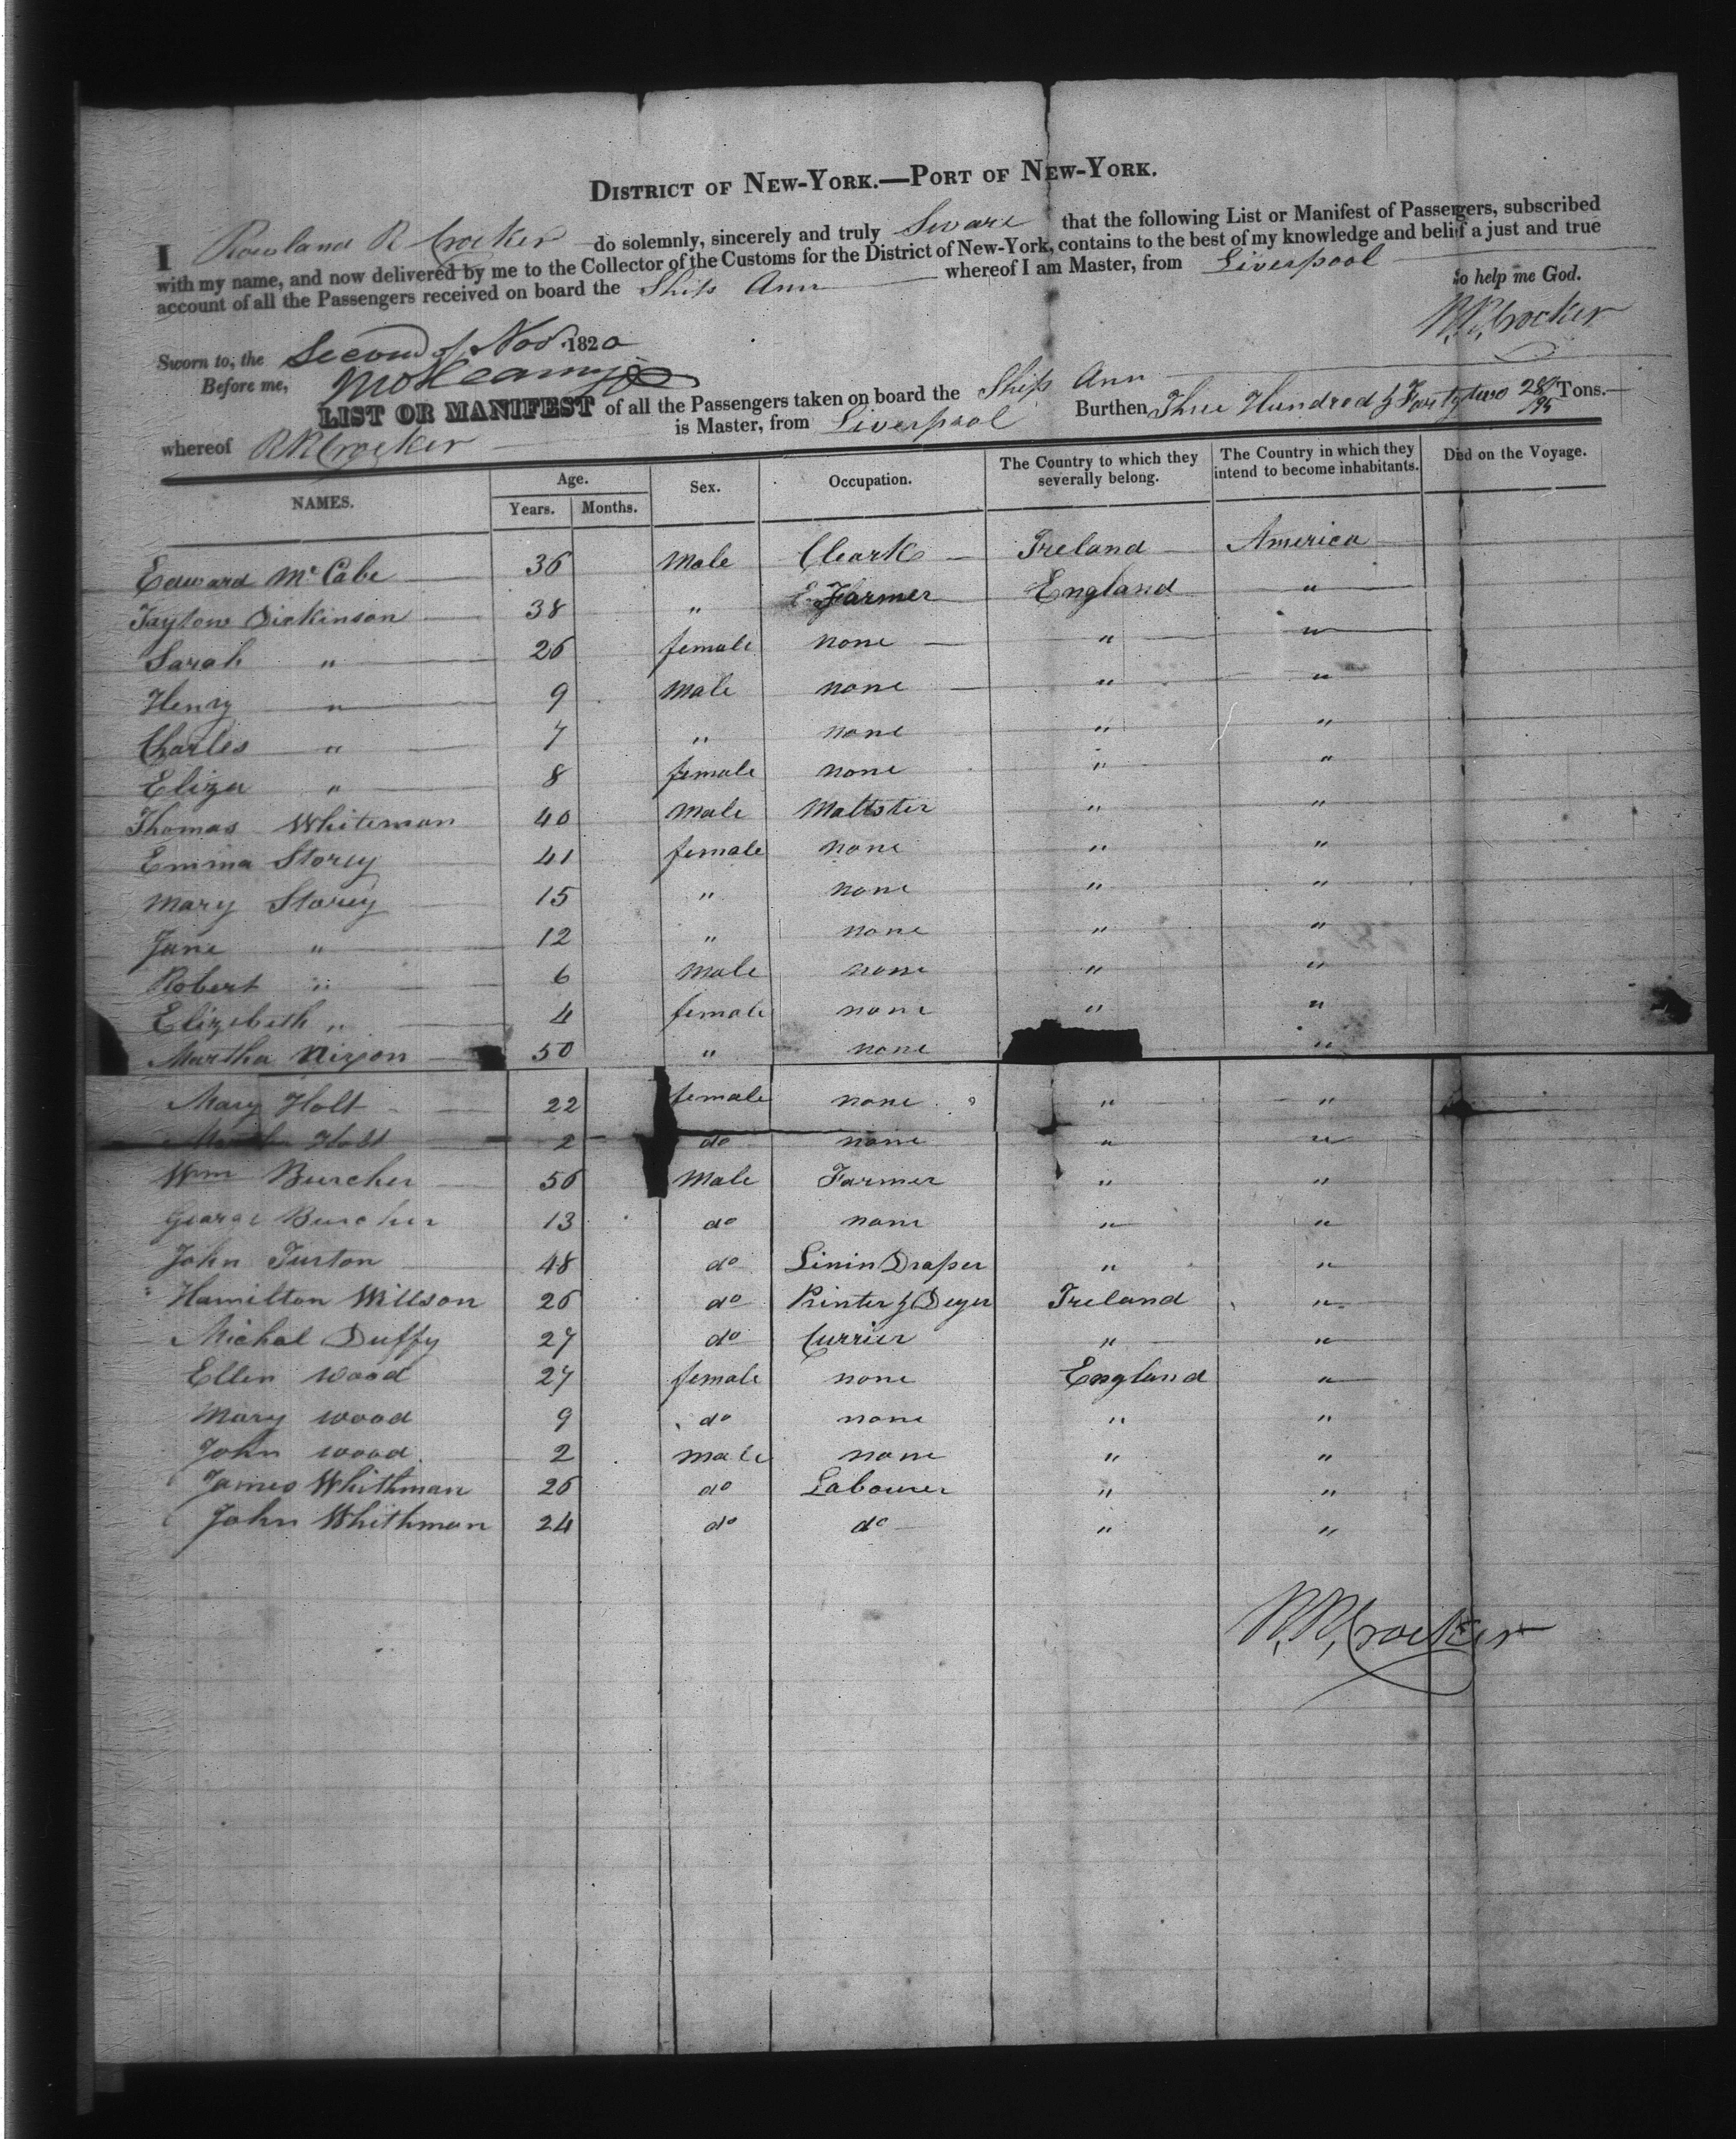 DISTRICT OF NEW-YORK.—PORT OF NEW-YORK.
I Rowland R Crocker do solemnly, sincerely and truly Sware that the following List or Manifest of Passengers, subscribed
with my name, and now delivered by me to the Collector of the Customs for the District of New-York, contains to the best of my knowledge and belief a just and true
account of all the Passengers received on board the Ship Ann whereof I am Master, from Liverpool
So help me God.
R,R,Crocker
Sworn to, the Second of Nov. 1820
Before me,
LIST OR MANIFEST of all the Passengers taken on board the Ship Ann
Burthen Three Hundred & Forty two 28/95 Tons.
whereof R R Crocker is Master, from Liverpool
NAMES. Age. Years. Months. Sex. Occupation. The Country to which they severally belong. The Country in which they intend to become inhabitants. Died on the Voyage.
Edward McCabe 36 Male Cleark Ireland America
Taytow Dickinson 38 " Farmer England "
Sarah " 26 female none " "
Henry " 9 Male none " "
Charles " 7 " none " "
Eliza " 8 female none " "
Thomas Whiteman 40 Male Maltster " "
Emma Storey 41 female none " "
Mary Storey 15 " none " "
Jane " 12 " none " "
Robert " 6 Male none " "
Elizebeth " 4 female none " "
Martha Nixon 50 " none "
Mary Holt 22 female none " "
Holt 2 do none " "
Wm Burcher 56 Male Farmer " "
George Burcher 13 do none " "
John Turton 48 do Linin Draper " "
Hamilton Willson 26 do Printer & Deyer Ireland "
Michal Duffy 27 do Currier " "
Ellen Wood 27 female none England "
Mary Wood 9 do none " "
John Wood 2 male none " "
James Whithman 26 do Labourer " "
John Whithman 24 do do " "
R,R,Crocker